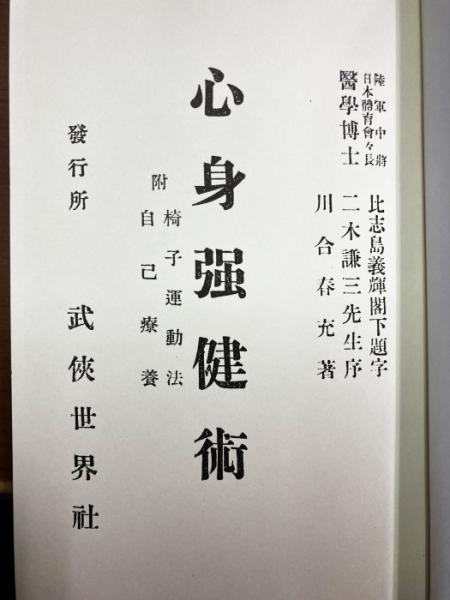 陸軍中將
日本體育會々長
比志島義輝閣下題字
醫學博士
二木謙三先生序
川合春充著
心身强健術
附
椅子運動法
自己療養
發行所 武俠世界社